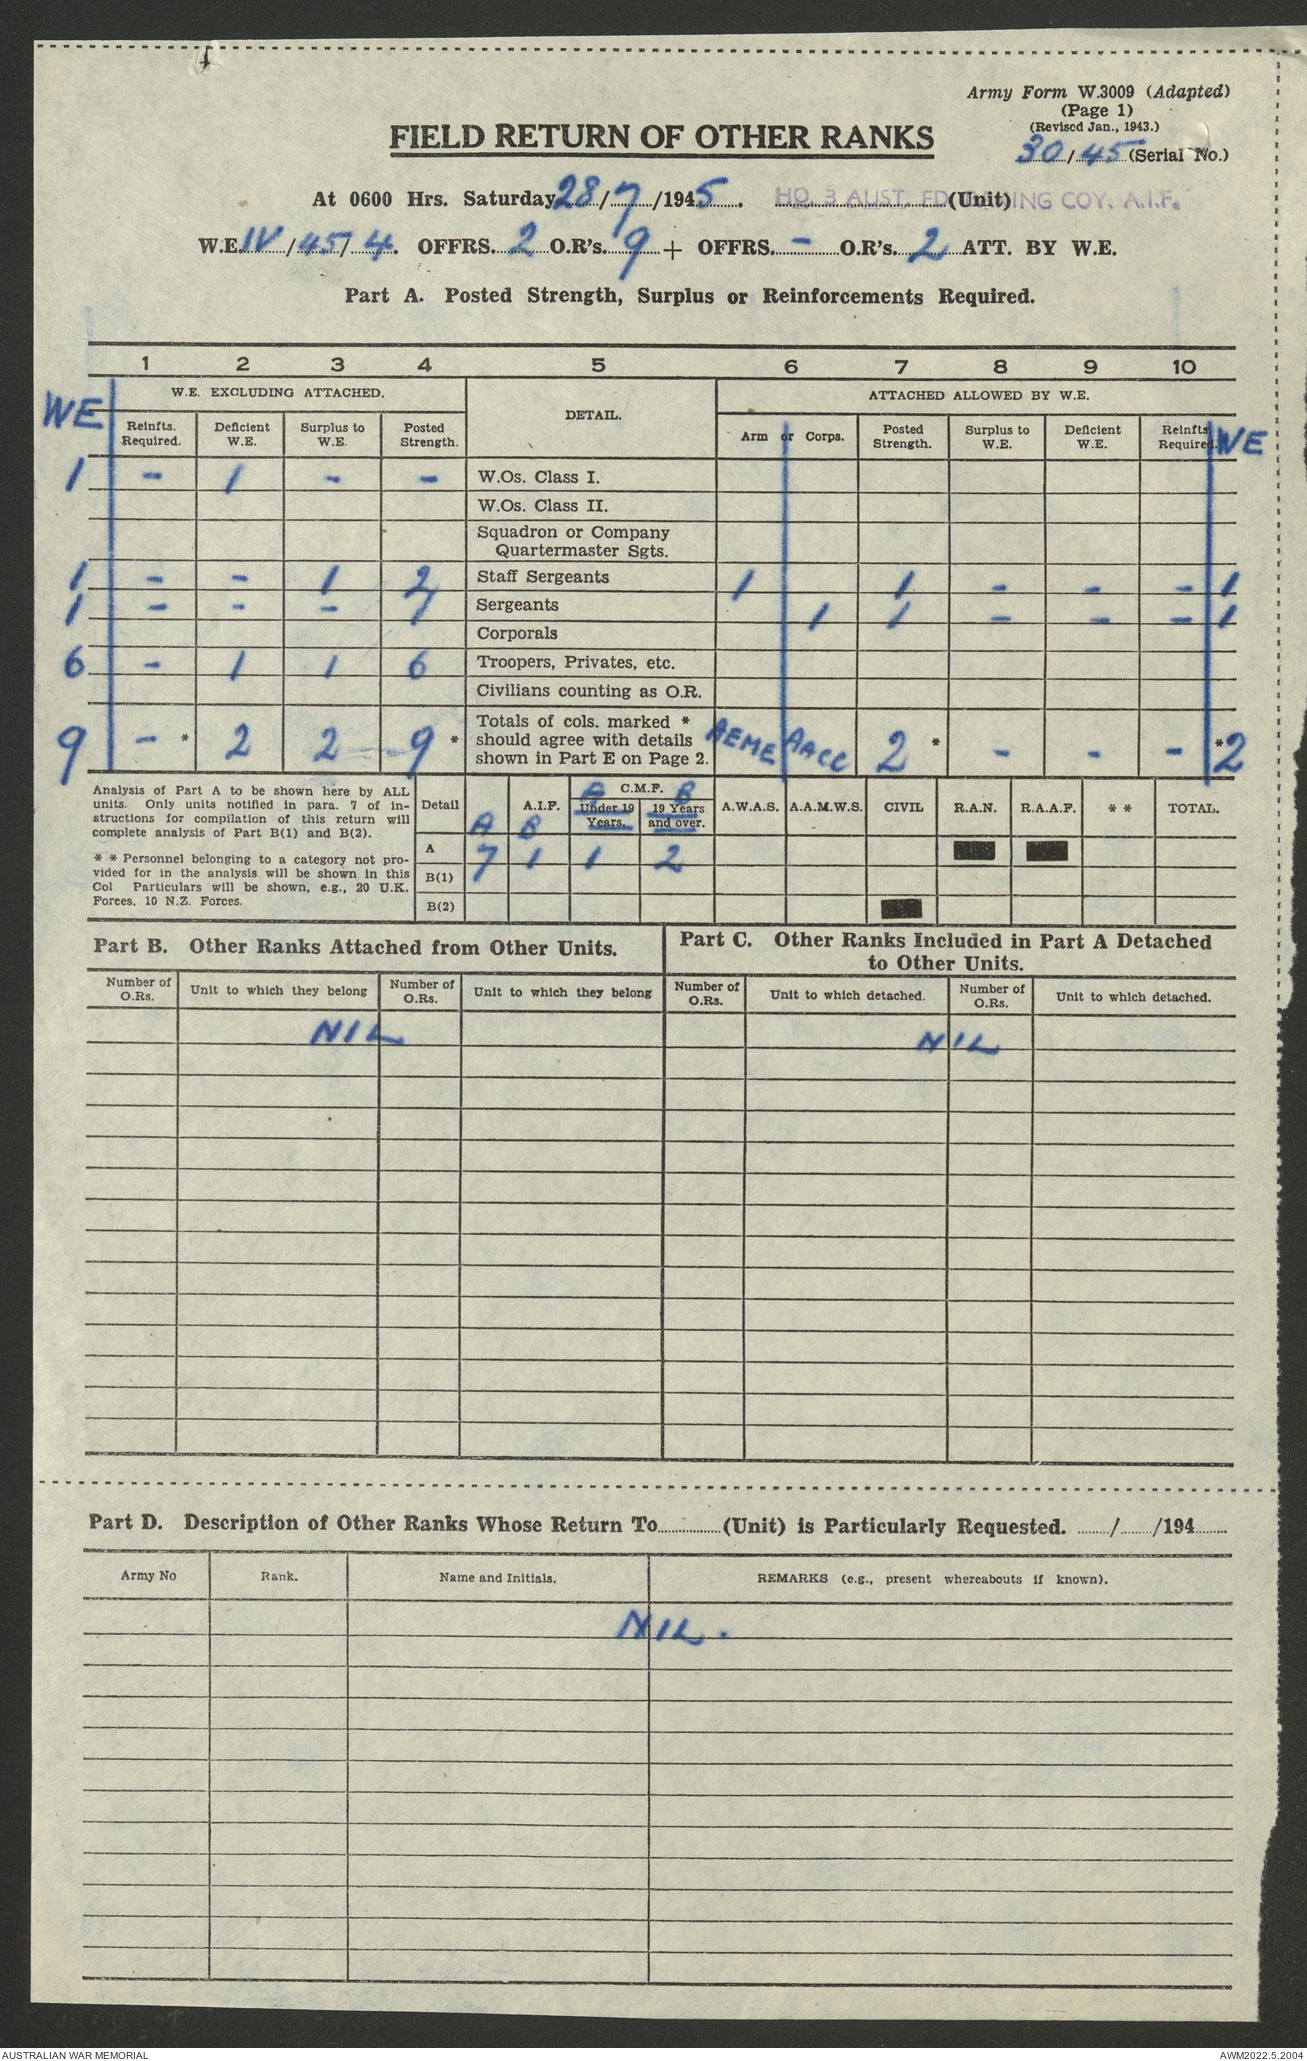 Army Form W.3009 (Adapted)
(Page 1)
(Revised Jan., 1943.)
30/45 (Serial No.)
FIELD RETURN OF OTHER RANKS
At 0600 Hrs. Saturday 28/7/1945. HQ. 3 AUST. FD. ING COY. A.I.F. (Unit)
W.E. IV/45/4. OFFRS. 2 O.R's. 9 + OFFRS. - O.R's. 2 ATT. BY W.E.
Part A. Posted Strength, Surplus or Reinforcements Required.
1 2 3 4 5 6 7 8 9 10
W.E. EXCLUDING ATTACHED. DETAIL. ATTACHED ALLOWED BY W.E.
WE Reinfts. Required. Deficient W.E. Surplus to W.E. Posted Strength. Arm or Corps. Posted Strength. Surplus to W.E. Deficient W.E. Reinfts. Required. WE
1 - 1 - - W.Os. Class I.
W.Os. Class II.
Squadron or Company
Quartermaster Sgts.
1 - - 1 2 Staff Sergeants 1 1 - - - 1
1 - - - 1 Sergeants 1 1 - - - 1
Corporals
6 - 1 1 6 Troopers, Privates, etc.
Civilians counting as O.R.
9 - * 2 2 9 * Totals of cols. marked * should agree with details shown in Part E on Page 2. AEME AACC 2 * - - - * 2
Analysis of Part A to be shown here by ALL
units. Only units notified in para. 7 of in-
structions for compilation of this return will
complete analysis of Part B(1) and B(2).
* * Personnel belonging to a category not pro-
vided for in the analysis will be shown in this
Col Particulars will be shown, e.g., 20 U.K.
Forces, 10 N.Z. Forces.
Detail A.I.F. C.M.F. A.W.A.S. A.A.M.W.S. CIVIL R.A.N. R.A.A.F. * * TOTAL.
A B A Under 19 Years. B 19 Years and over.
A 7 1 1 2
B(1)
B(2)
Part B. Other Ranks Attached from Other Units.
Number of O.Rs. Unit to which they belong Number of O.Rs. Unit to which they belong
NIL
Part C. Other Ranks Included in Part A Detached
to Other Units.
Number of O.Rs. Unit to which detached. Number of O.Rs. Unit to which detached.
NIL
Part D. Description of Other Ranks Whose Return To............(Unit) is Particularly Requested. ......../......../194........
Army No Rank. Name and Initials. REMARKS (e.g., present whereabouts if known).
NIL.
AUSTRALIAN WAR MEMORIAL
AWM2022.5.2004